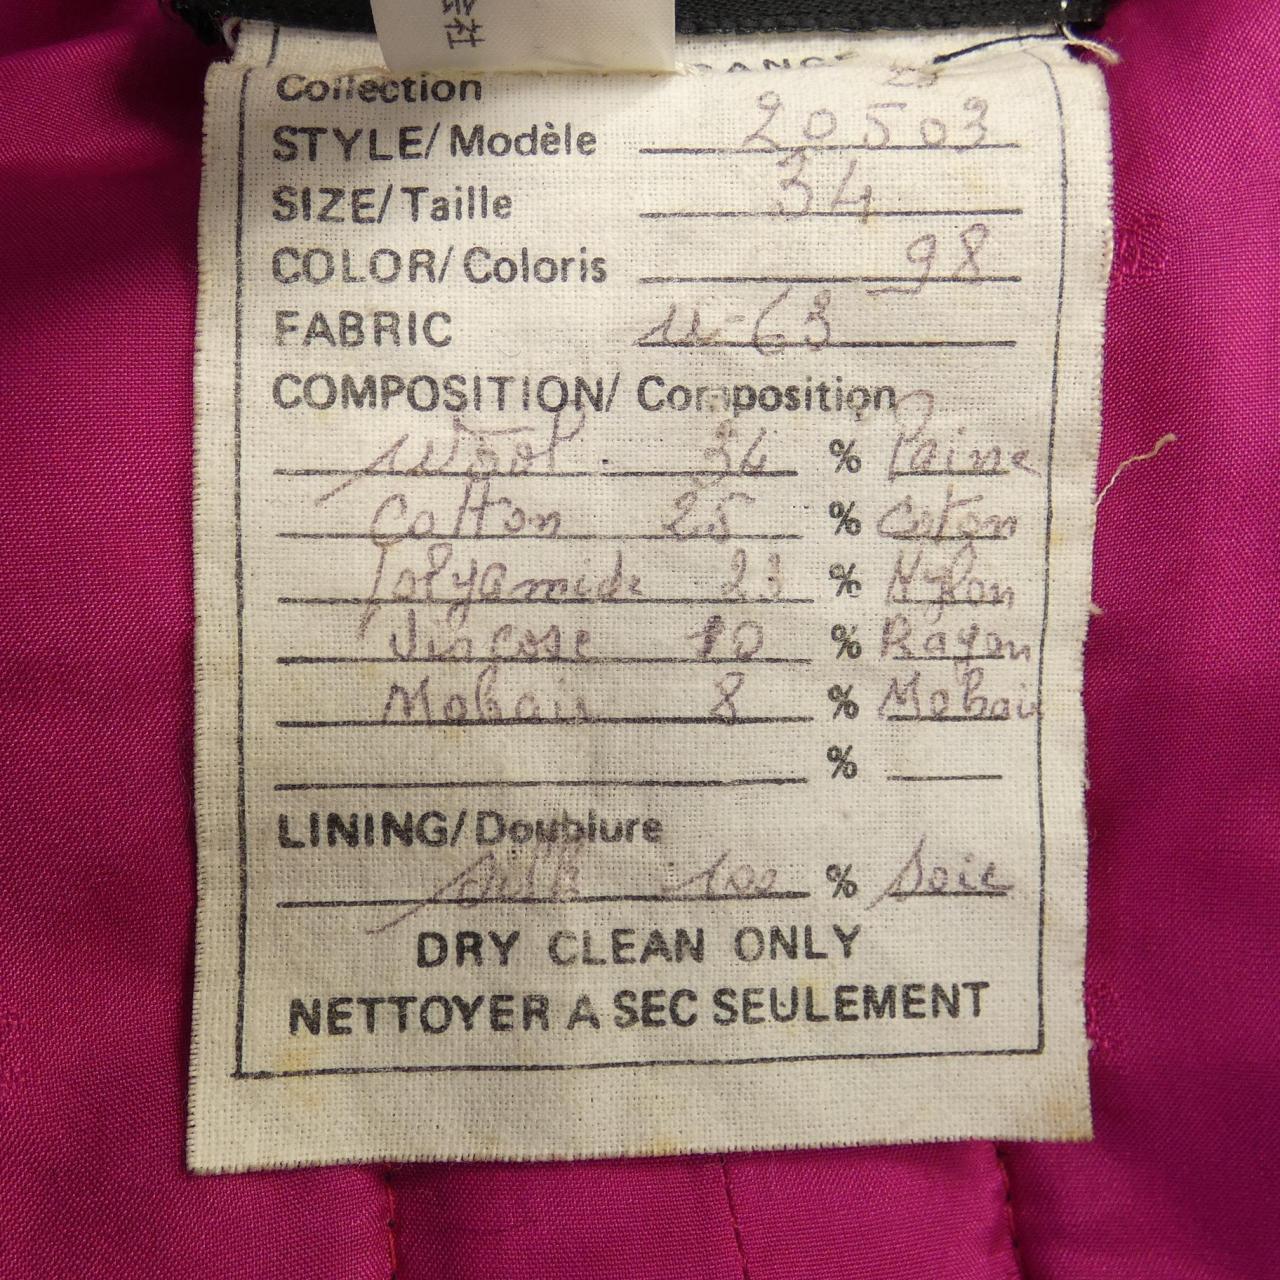 会社
Collection 25
STYLE/Modèle 20503
SIZE/Taille 34
COLOR/Coloris 98
FABRIC 63
COMPOSITION/Composition
Wool 34 % Laine
Cotton 25 % Coton
Polyamide 23 % Nylon
Viscose 10 % Rayon
Mohair 8 % Mohair
%
LINING/Doublure
Silk 100 % Soie
DRY CLEAN ONLY
NETTOYER A SEC SEULEMENT